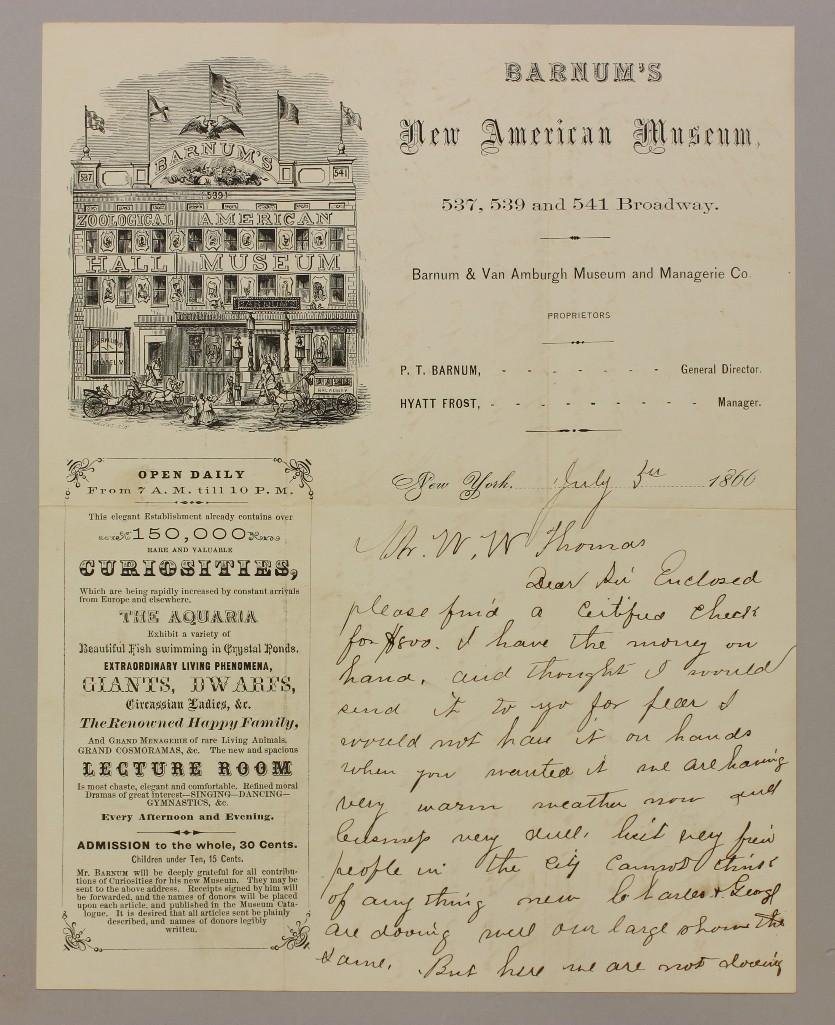 BARNUM'S
537
541
539
ZOOLOGICAL AMERICAN
HALL MUSEUM
BARNUM'S
BARNUM'S
MUSEUM
BROADWAY
BARNUM'S
New American Museum,
537, 539 and 541 Broadway.
Barnum & Van Amburgh Museum and Managerie Co.
PROPRIETORS
P. T. BARNUM, - - - - - - - General Director.
HYATT FROST, - - - - - - - - Manager.
OPEN DAILY
From 7 A. M. till 10 P. M.
This elegant Establishment already contains over
150,000
RARE AND VALUABLE
CURIOSITIES,
Which are being rapidly increased by constant arrivals
from Europe and elsewhere.
THE AQUARIA
Exhibit a variety of
Beautiful Fish swimming in Crystal Ponds.
EXTRAORDINARY LIVING PHENOMENA,
GIANTS, DWARFS,
Circassian Ladies, &c.
The Renowned Happy Family,
And GRAND MENAGERIE of rare Living Animals.
GRAND COSMORAMAS, &c. The new and spacious
LECTURE ROOM
Is most chaste, elegant and comfortable. Refined moral
Dramas of great interest—SINGING—DANCING—
GYMNASTICS, &c.
Every Afternoon and Evening.
ADMISSION to the whole, 30 Cents.
Children under Ten, 15 Cents.
Mr. BARNUM will be deeply grateful for all contribu-
tions of Curiosities for his new Museum. They may be
sent to the above address. Receipts signed by him will
be forwarded, and the names of donors will be placed
upon each article, and published in the Museum Cata-
logue. It is desired that all articles sent be plainly
described, and names of donors legibly
written.
New York. July 1866
Mr. W. W Thomas
Dear Sir Enclosed
please find a certified check
for $800. I have the money on
hand, and thought I would
send it to yo for fear I
would not have it on hands
when you wanted it we are having
very warm weather now and
business very dull, but very few
people in the city cannot think
of any thing new Charles & George
are dooing well our large show the
same. But here we are not dooing